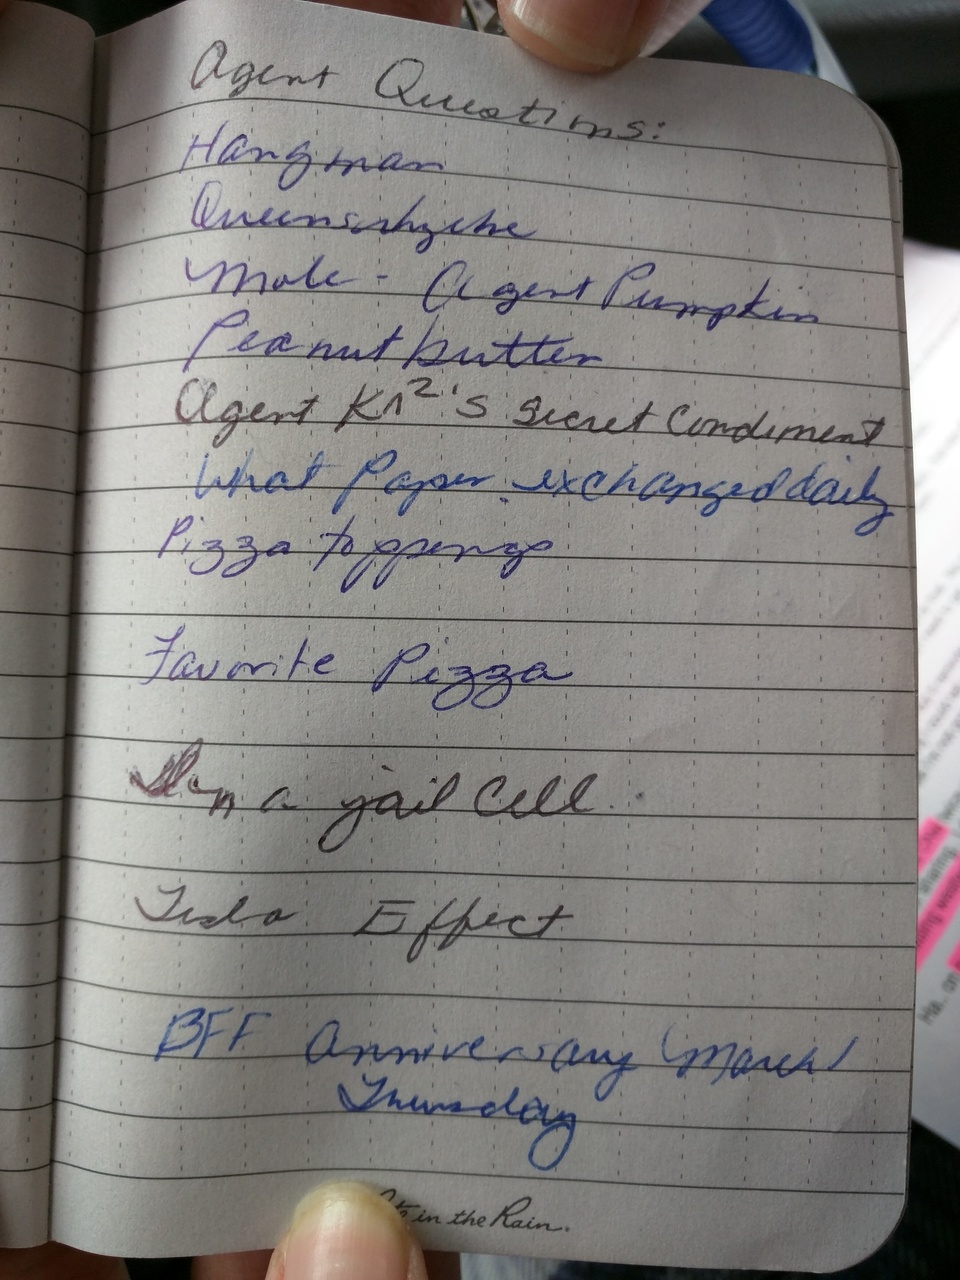 Agent Questions:
Hangman
Queensrhyche
Mole - Agent Pumpkin
Peanut butter
Agent KA²'s Secret Condiment
What Paper exchanged daily
Pizza toppings
Favorite Pizza
In a jail Cell
Tesla Effect
BFF Anniversary (March/
Thursday
in the Rain.